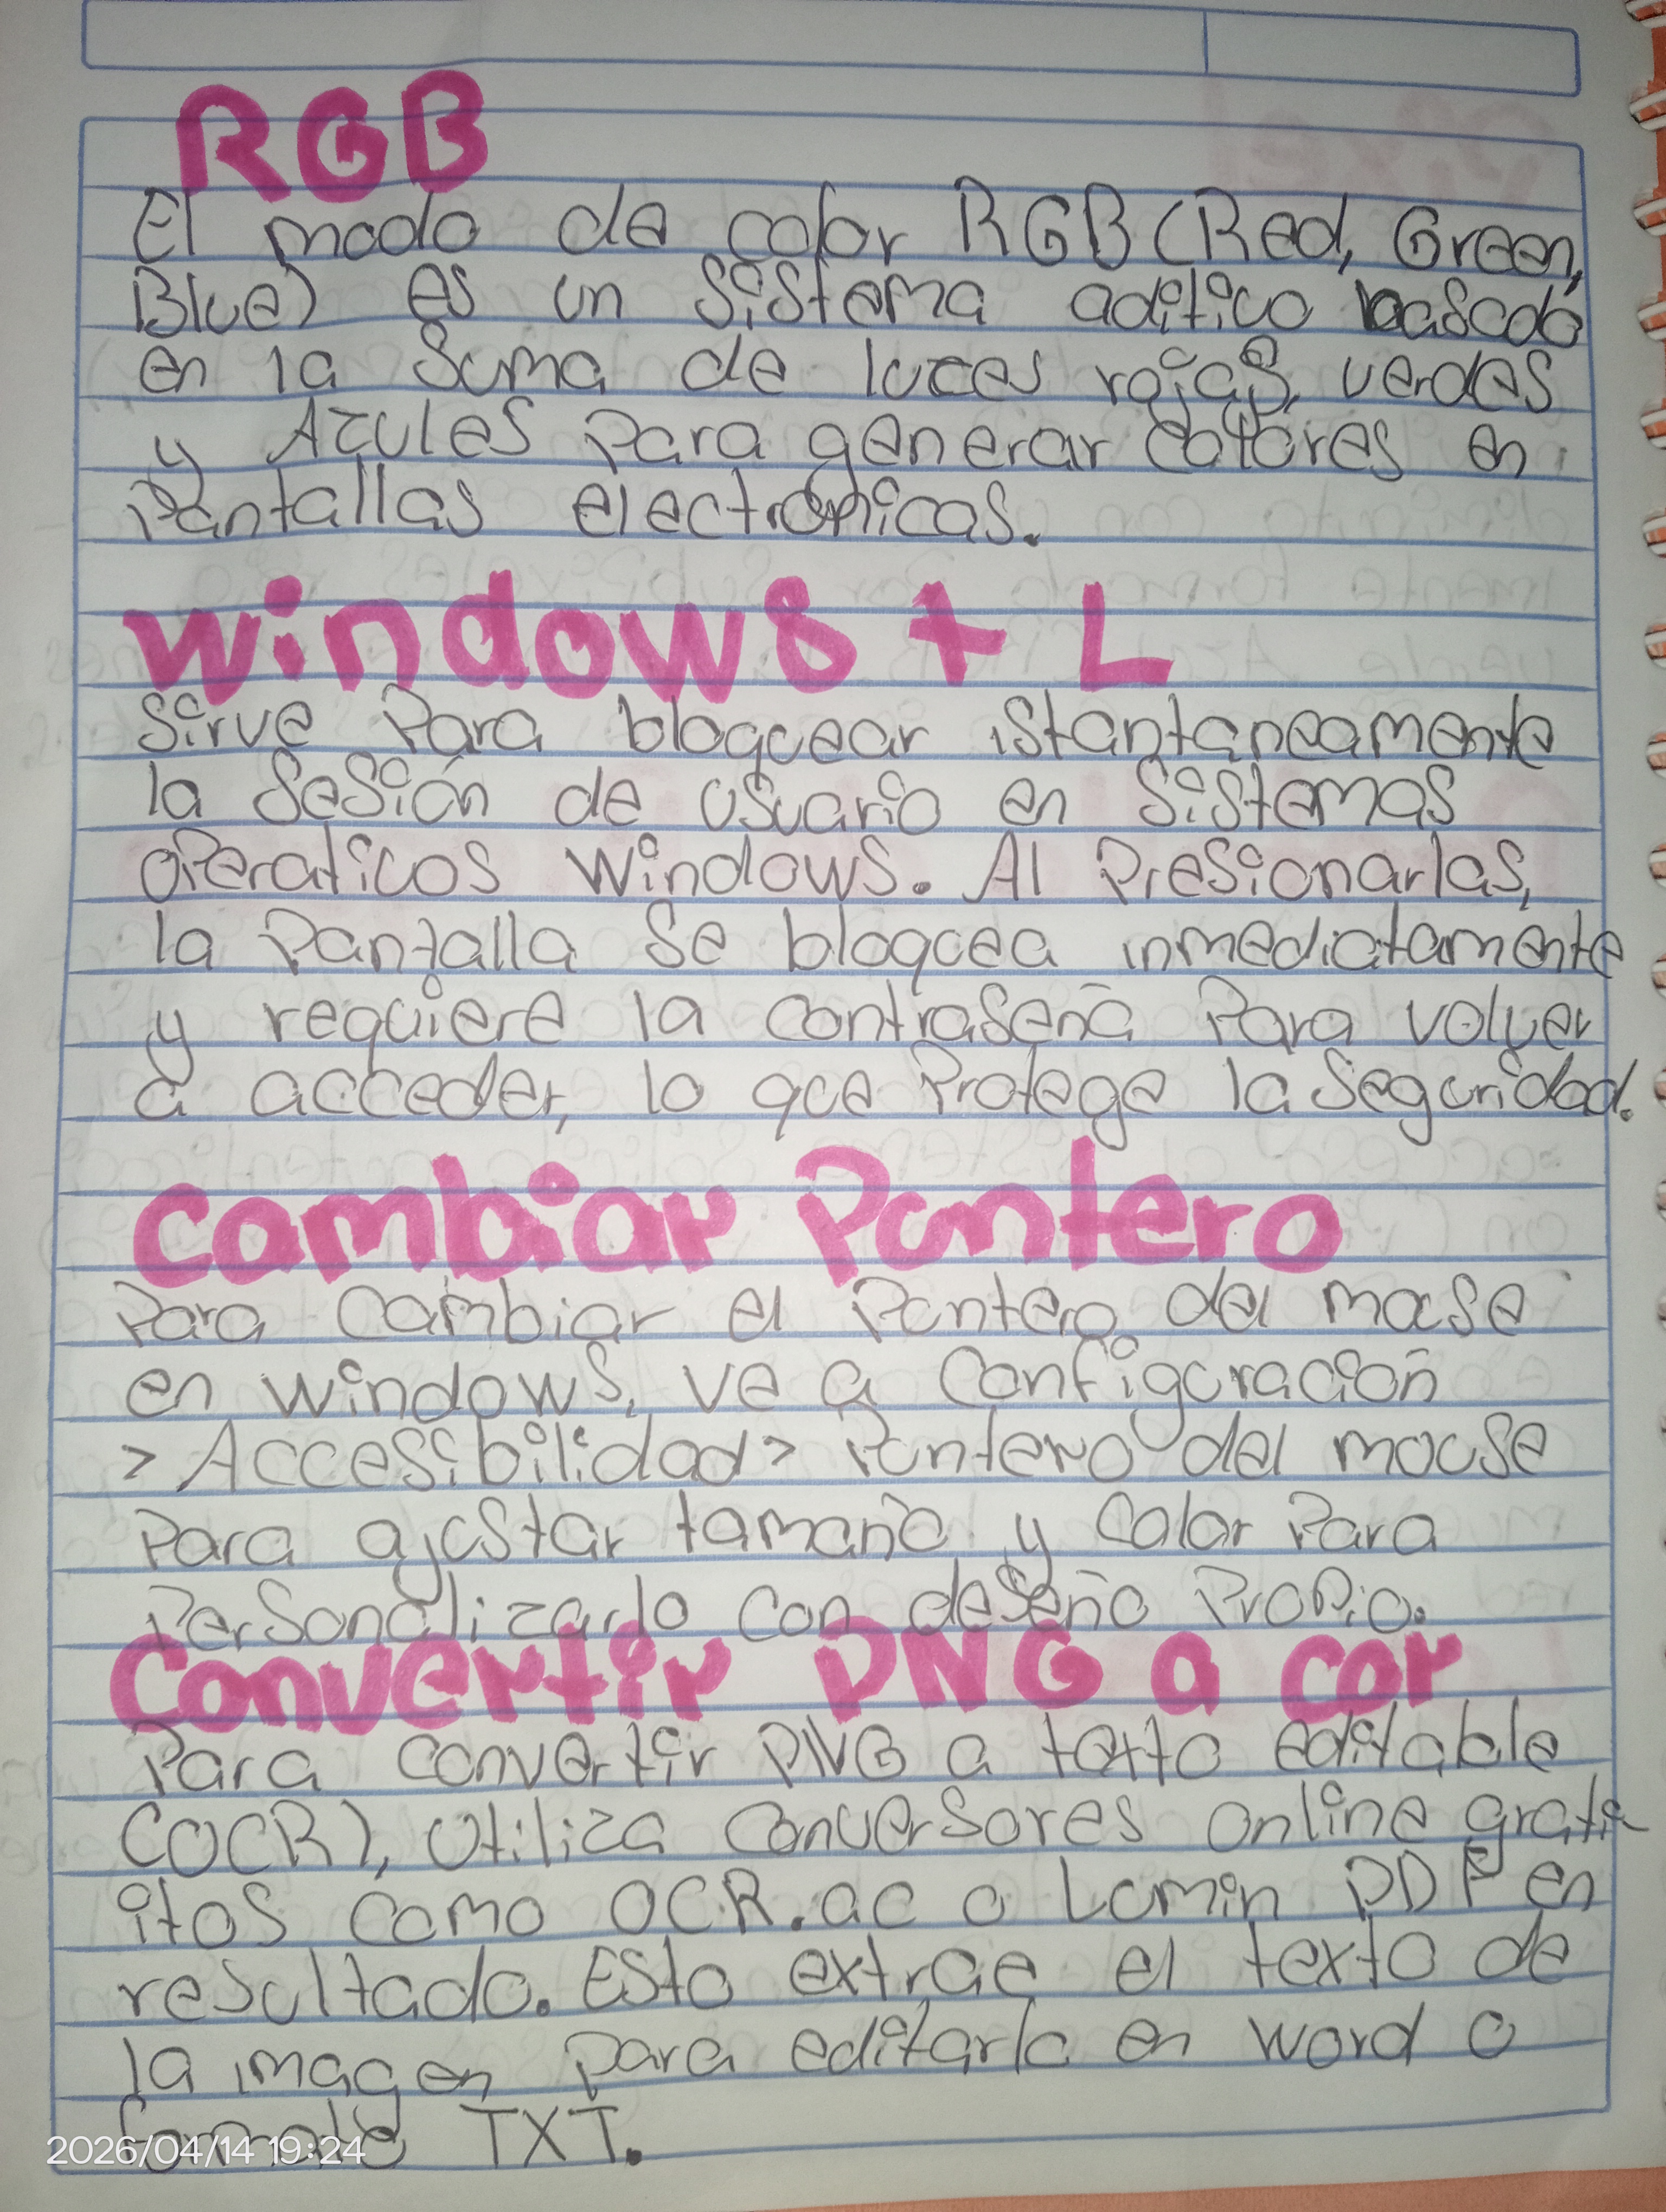 RGB
El modo de color RGB (Red, Green,
Blue) es un sistema aditivo basado
en la suma de luces rojas, verdes
y Azules para generar colores en
Pantallas electronicas.
windows + L
Sirve Para bloquear istantaneamente
la sesión de usuario en sistemas
operativos Windows. Al Presionarlas,
la Pantalla se bloquea inmediatamente
y requiere la contraseña Para volver
a acceder, lo que Protege la seguridad.
Cambiar Puntero
Para cambiar el Puntero del mouse
en windows, ve a Configuración
> Accesibilidad > Puntero del mouse
Para ajustar tamaño y Color Para
Personalizarlo con deseño Propio.
Convertir PNG a cor
Para convertir PNG a texto editable
(OCR), Utiliza Conversores online gratu
itos como OCR.ac o Lumin PDF en
resultado. Esto extrae el texto de
la imagen para editarlo en word o
formato TXT.
2026/04/14 19:24